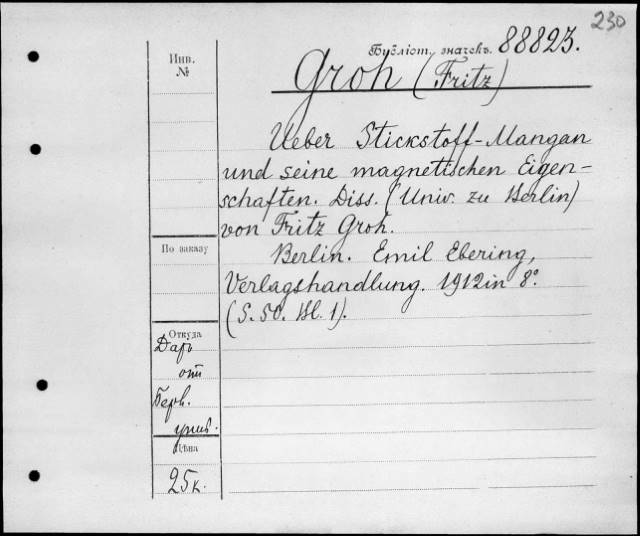 230
Библіот. значекъ. 88823.
Инв.
№
Groh (Fritz)
Ueber Stickstoff-Mangan
und seine magnetischen Eigen-
schaften. Diss. (Univ. zu Berlin)
von Fritz Groh.
Berlin. Emil Ebering,
Verlagshandlung. 1912 in 8°.
(S. 50. Bl. 1).
По заказу
Откуда
Даръ
отъ
Берл.
унив.
Цѣна
25 к.